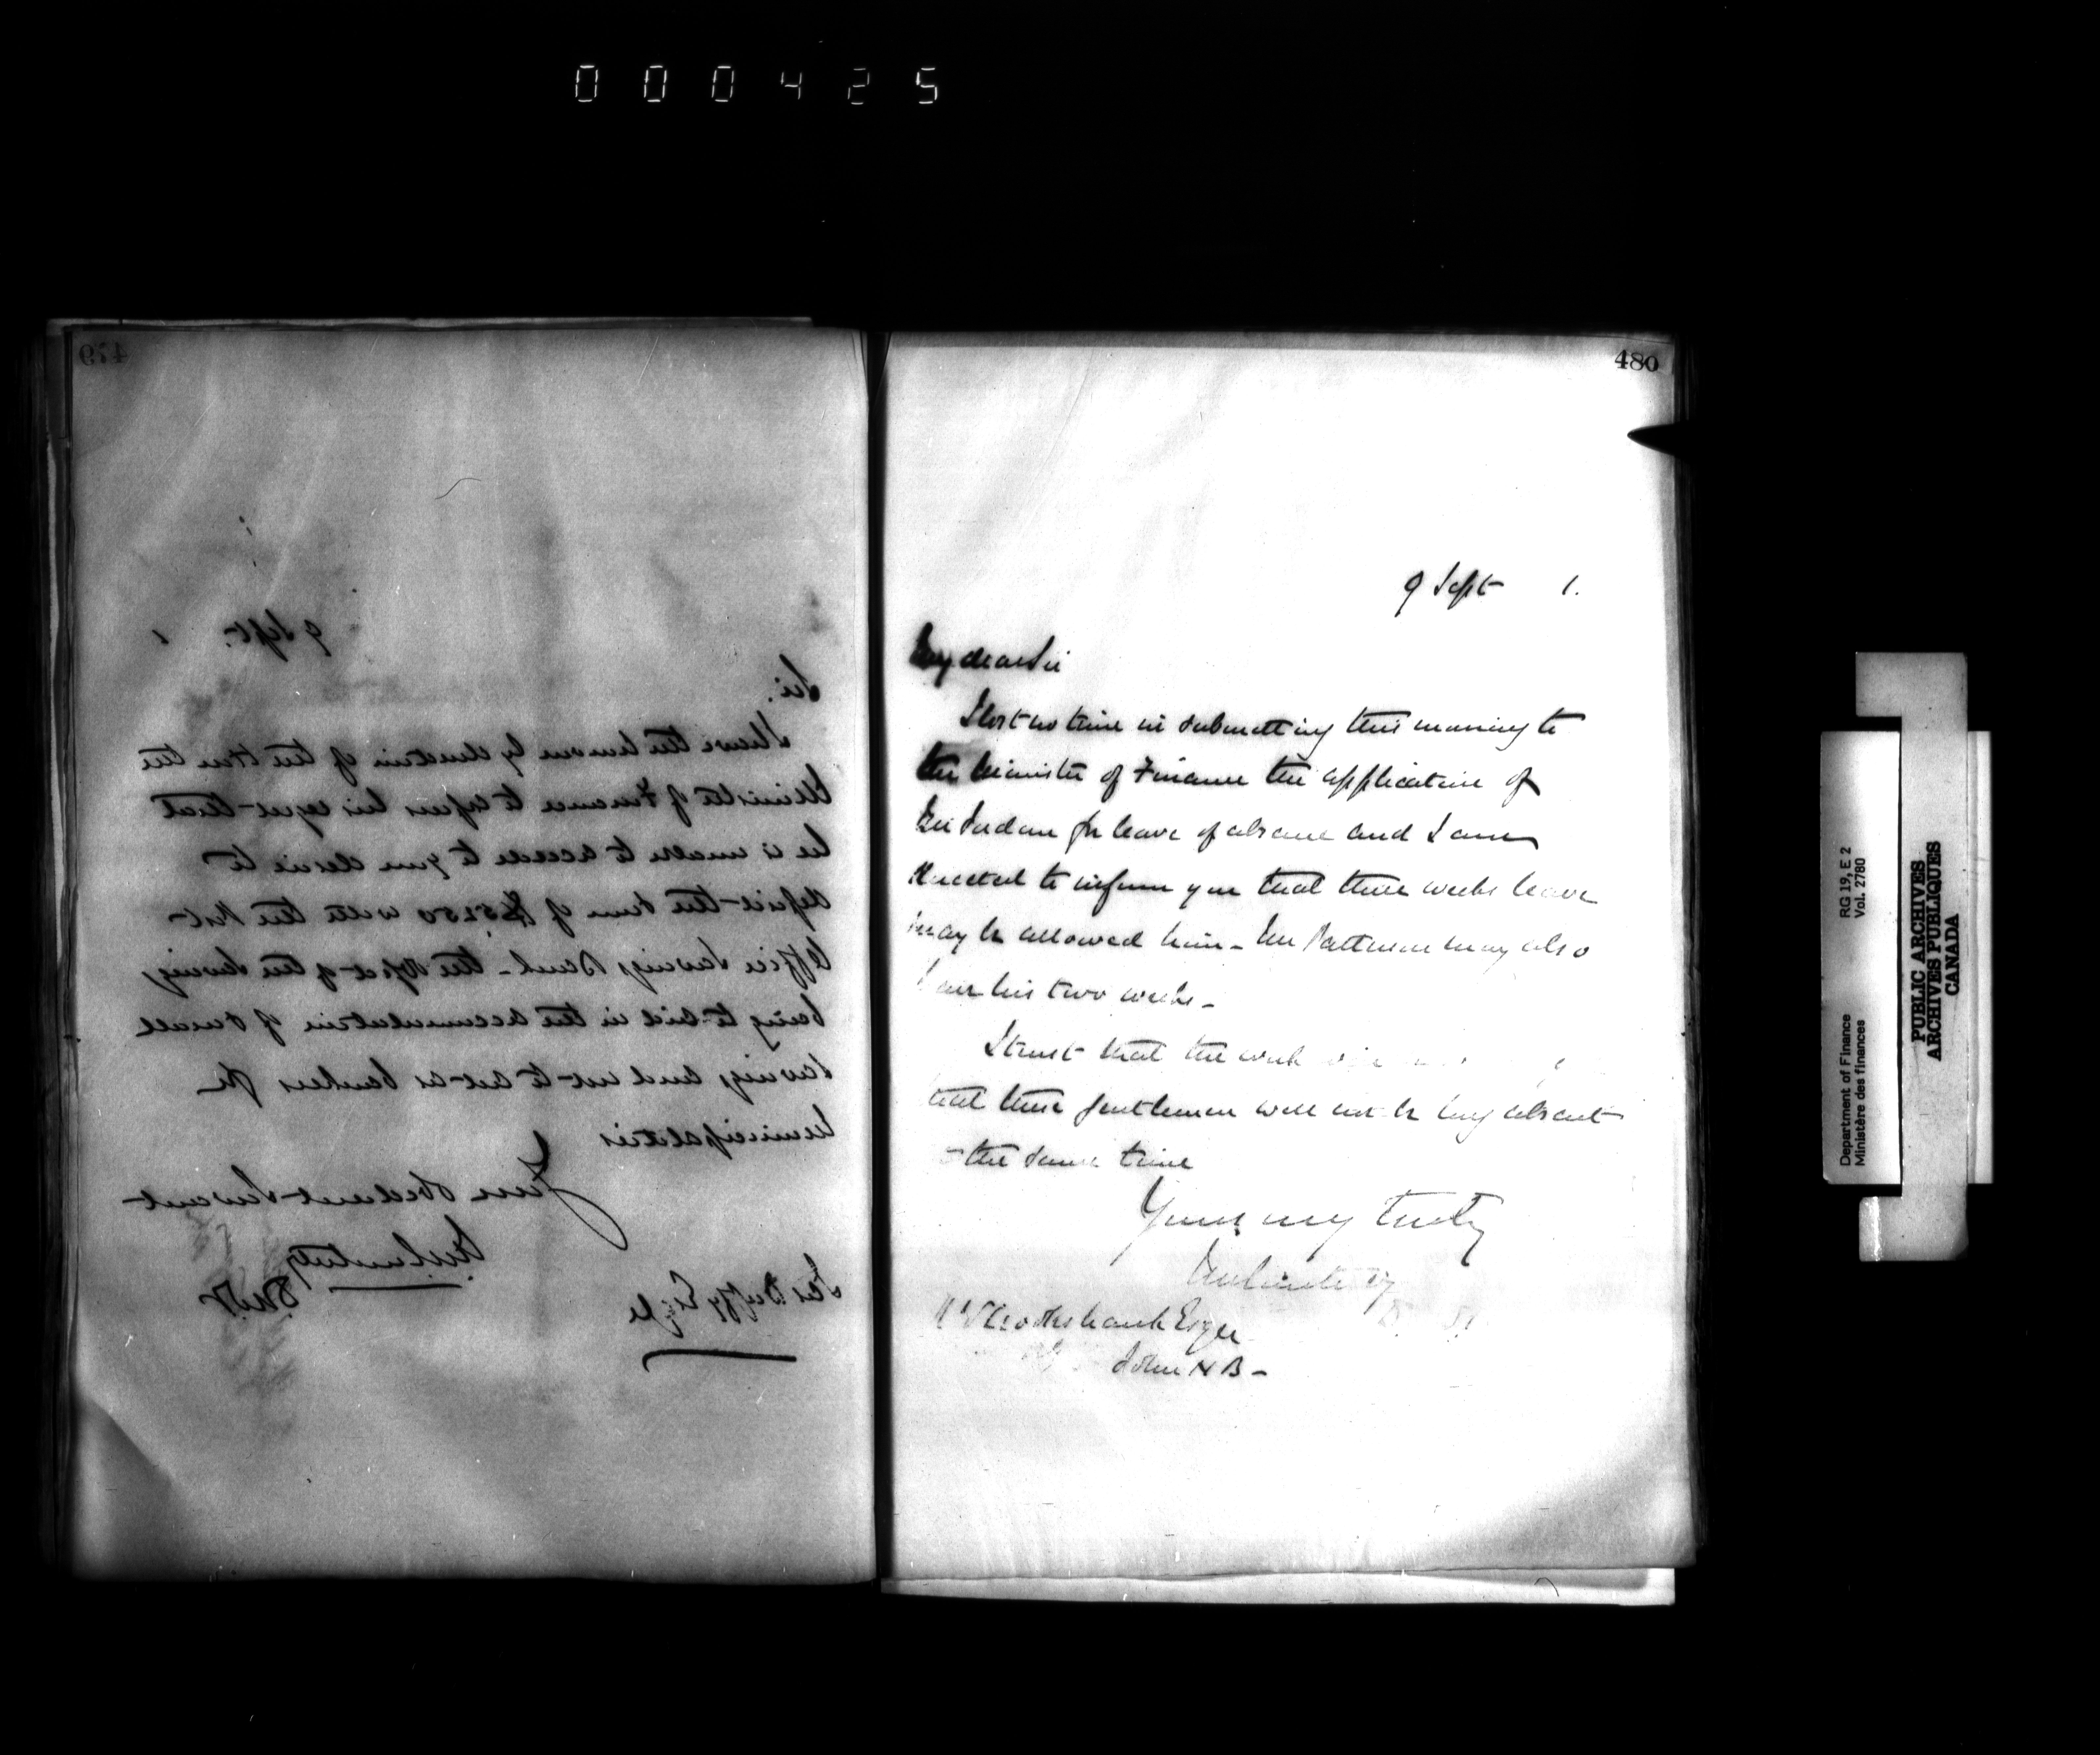 000425
479
9 Sept. 1
Sir.
I have the honour by direction of the Hon the
Minister of Finance to express his regret that
he is unable to accede to your desire to
deposit the sum of $5250 with the Post
Office Savings Bank - the object of the Savings
being to aid in the accumulation of small
savings and not to act as bankers for
Municipalities
Your obedient Servant
Jas Duffy Esqre
480
9 Sept 1.
My dear Sir
I lost no time in submitting this morning to
the Minister of Finance the application of
for leave of absence and I am
directed to inform you that three weeks leave
may be allowed him - Mr Patterson may also
have his two weeks -
I trust that the work
that these gentlemen will not be long absent
the same time
Yours very truly
Esqre
John N B -
Department of Finance
Ministère des finances
RG 19, E 2
Vol. 2780
PUBLIC ARCHIVES
ARCHIVES PUBLIQUES
CANADA